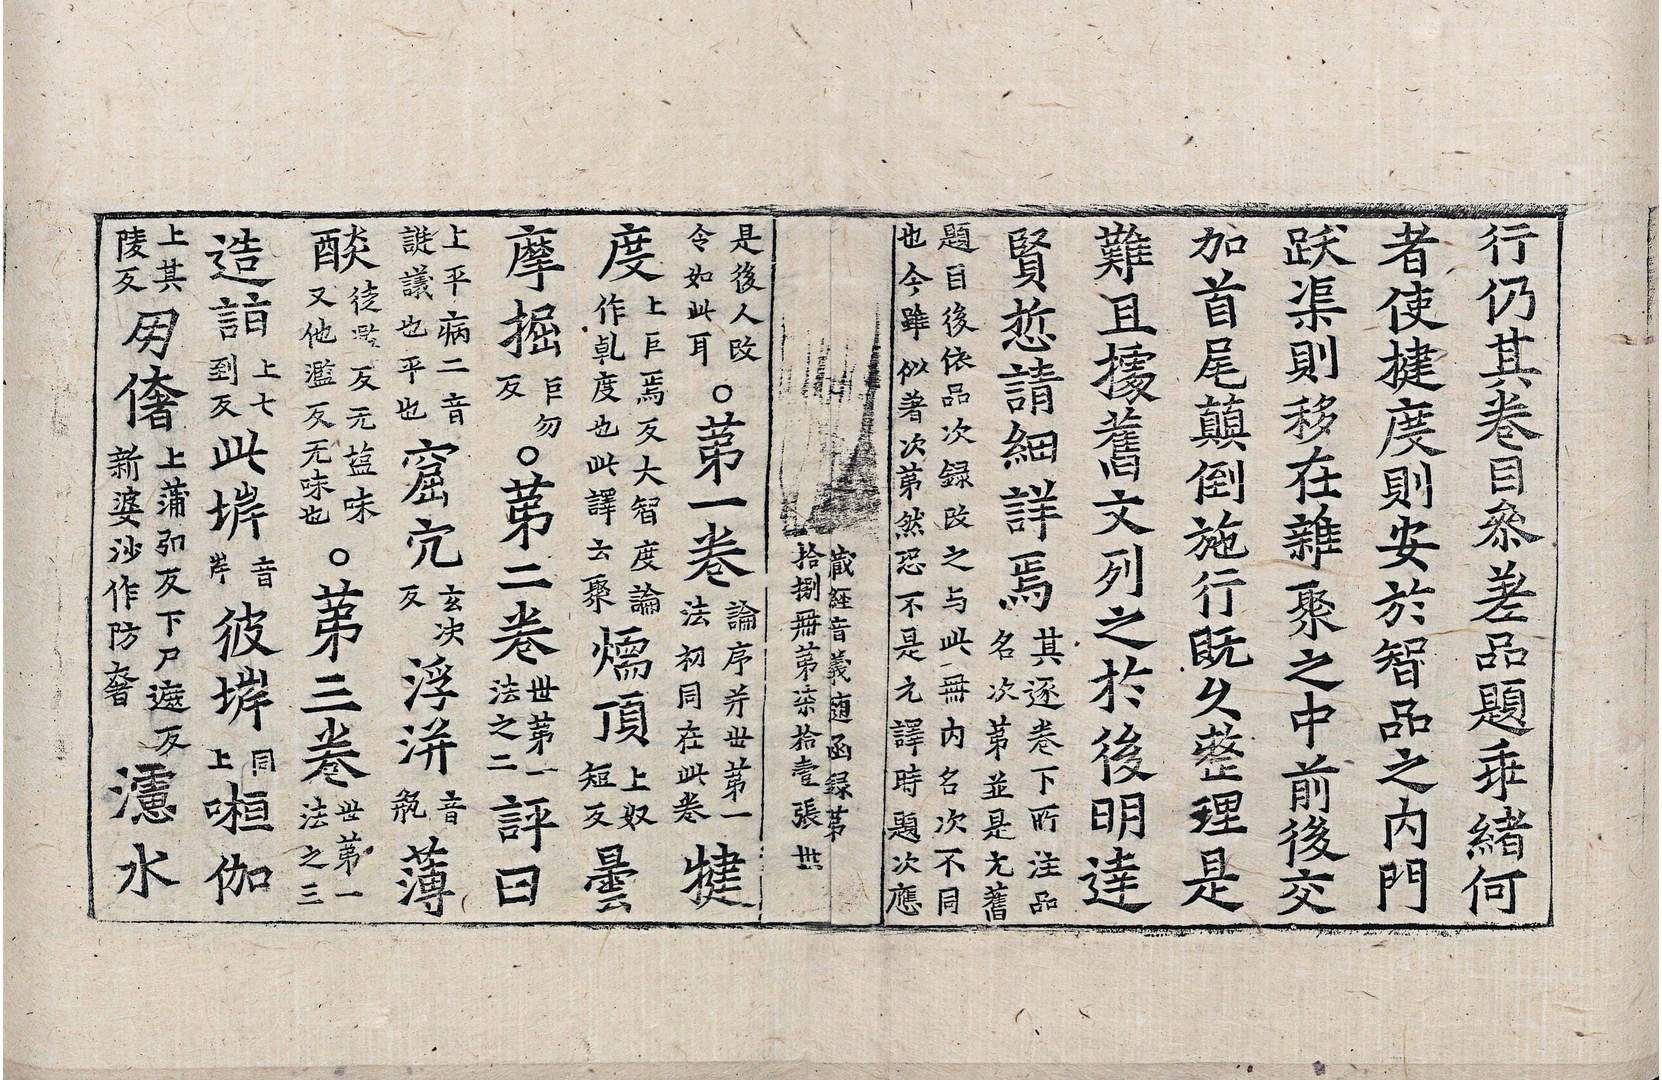 行仍其卷目叅差品題乖緒何
者使揵度則安於智品之内門
跃渠則移在雜聚之中前後交
加首尾顛倒施行旣久整理是
難且㩀舊文列之於後明達
賢悊請細詳焉 其逐卷下所注品名次第並是元舊
題目後依品次録改之与此一冊内名次不同
也今雖似著次第然恐不是元譯時題次應
藏經音義隨函録第
拾捌冊第柒拾壹張 丗
是後人改令如此耳 ○第一卷 論序并丗第一法初同在此卷 犍
度 上巨焉反大智度論作乹度也此譯云聚 燸頂 上奴短反 曇
摩掘 巨勿反 ○第二卷 丗第一法之二 評曰
上平病二音誰議也平也 窟穴 玄决反 浮洴 音缾 薄
酸 徒反元盐味又他濫反无味也 ○第三卷 丗第一法之三
造詣 上七到反 此㟁 音岸 彼㟁 同上 㖶伽
上其陵反 㘝 㒓 上蒲邲反下尸遮反新婆沙作防奢 濾水